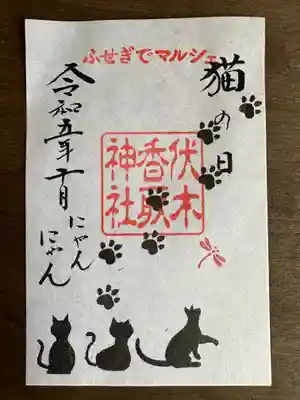 ふせぎでマルシェ
猫の日
伏木
香取
神社
令和五年十月
にゃん
にゃん